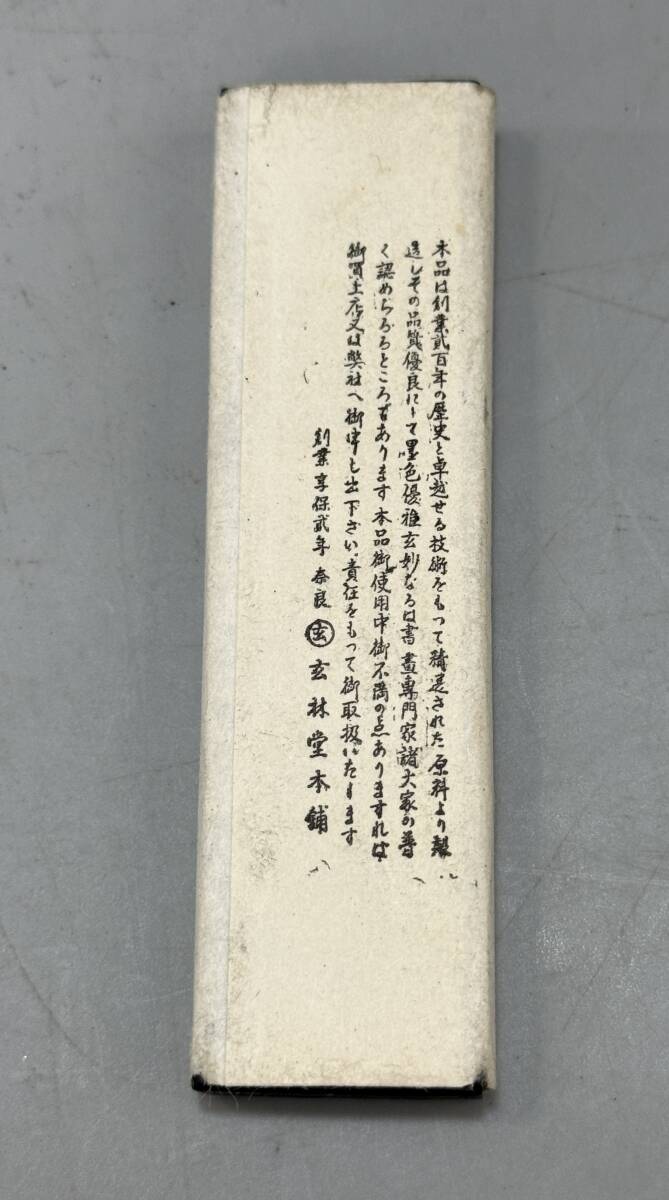 本品は創業貮百年の歴史と卓越せる技術をもって精選された原料より製
造しその品質優良にして墨色優雅玄妙なるは書畫専門家諸大家の普
く認めらるるところであります本品御使用中御不満の点ありますれば
御買上店又は弊社へ御申し出下さい責任をもって御取扱いたします
創業享保貮年 奈良 玄 玄林堂本舗